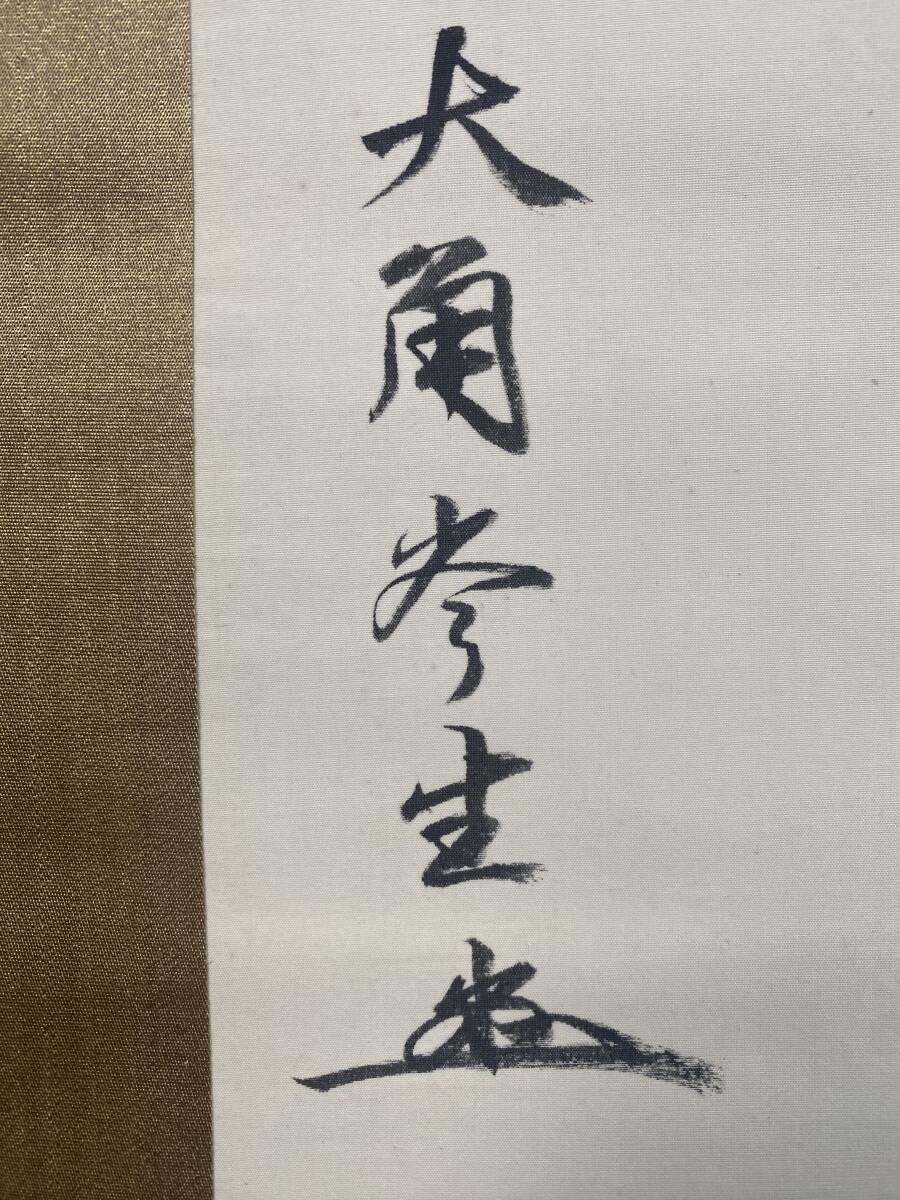 大角岑生